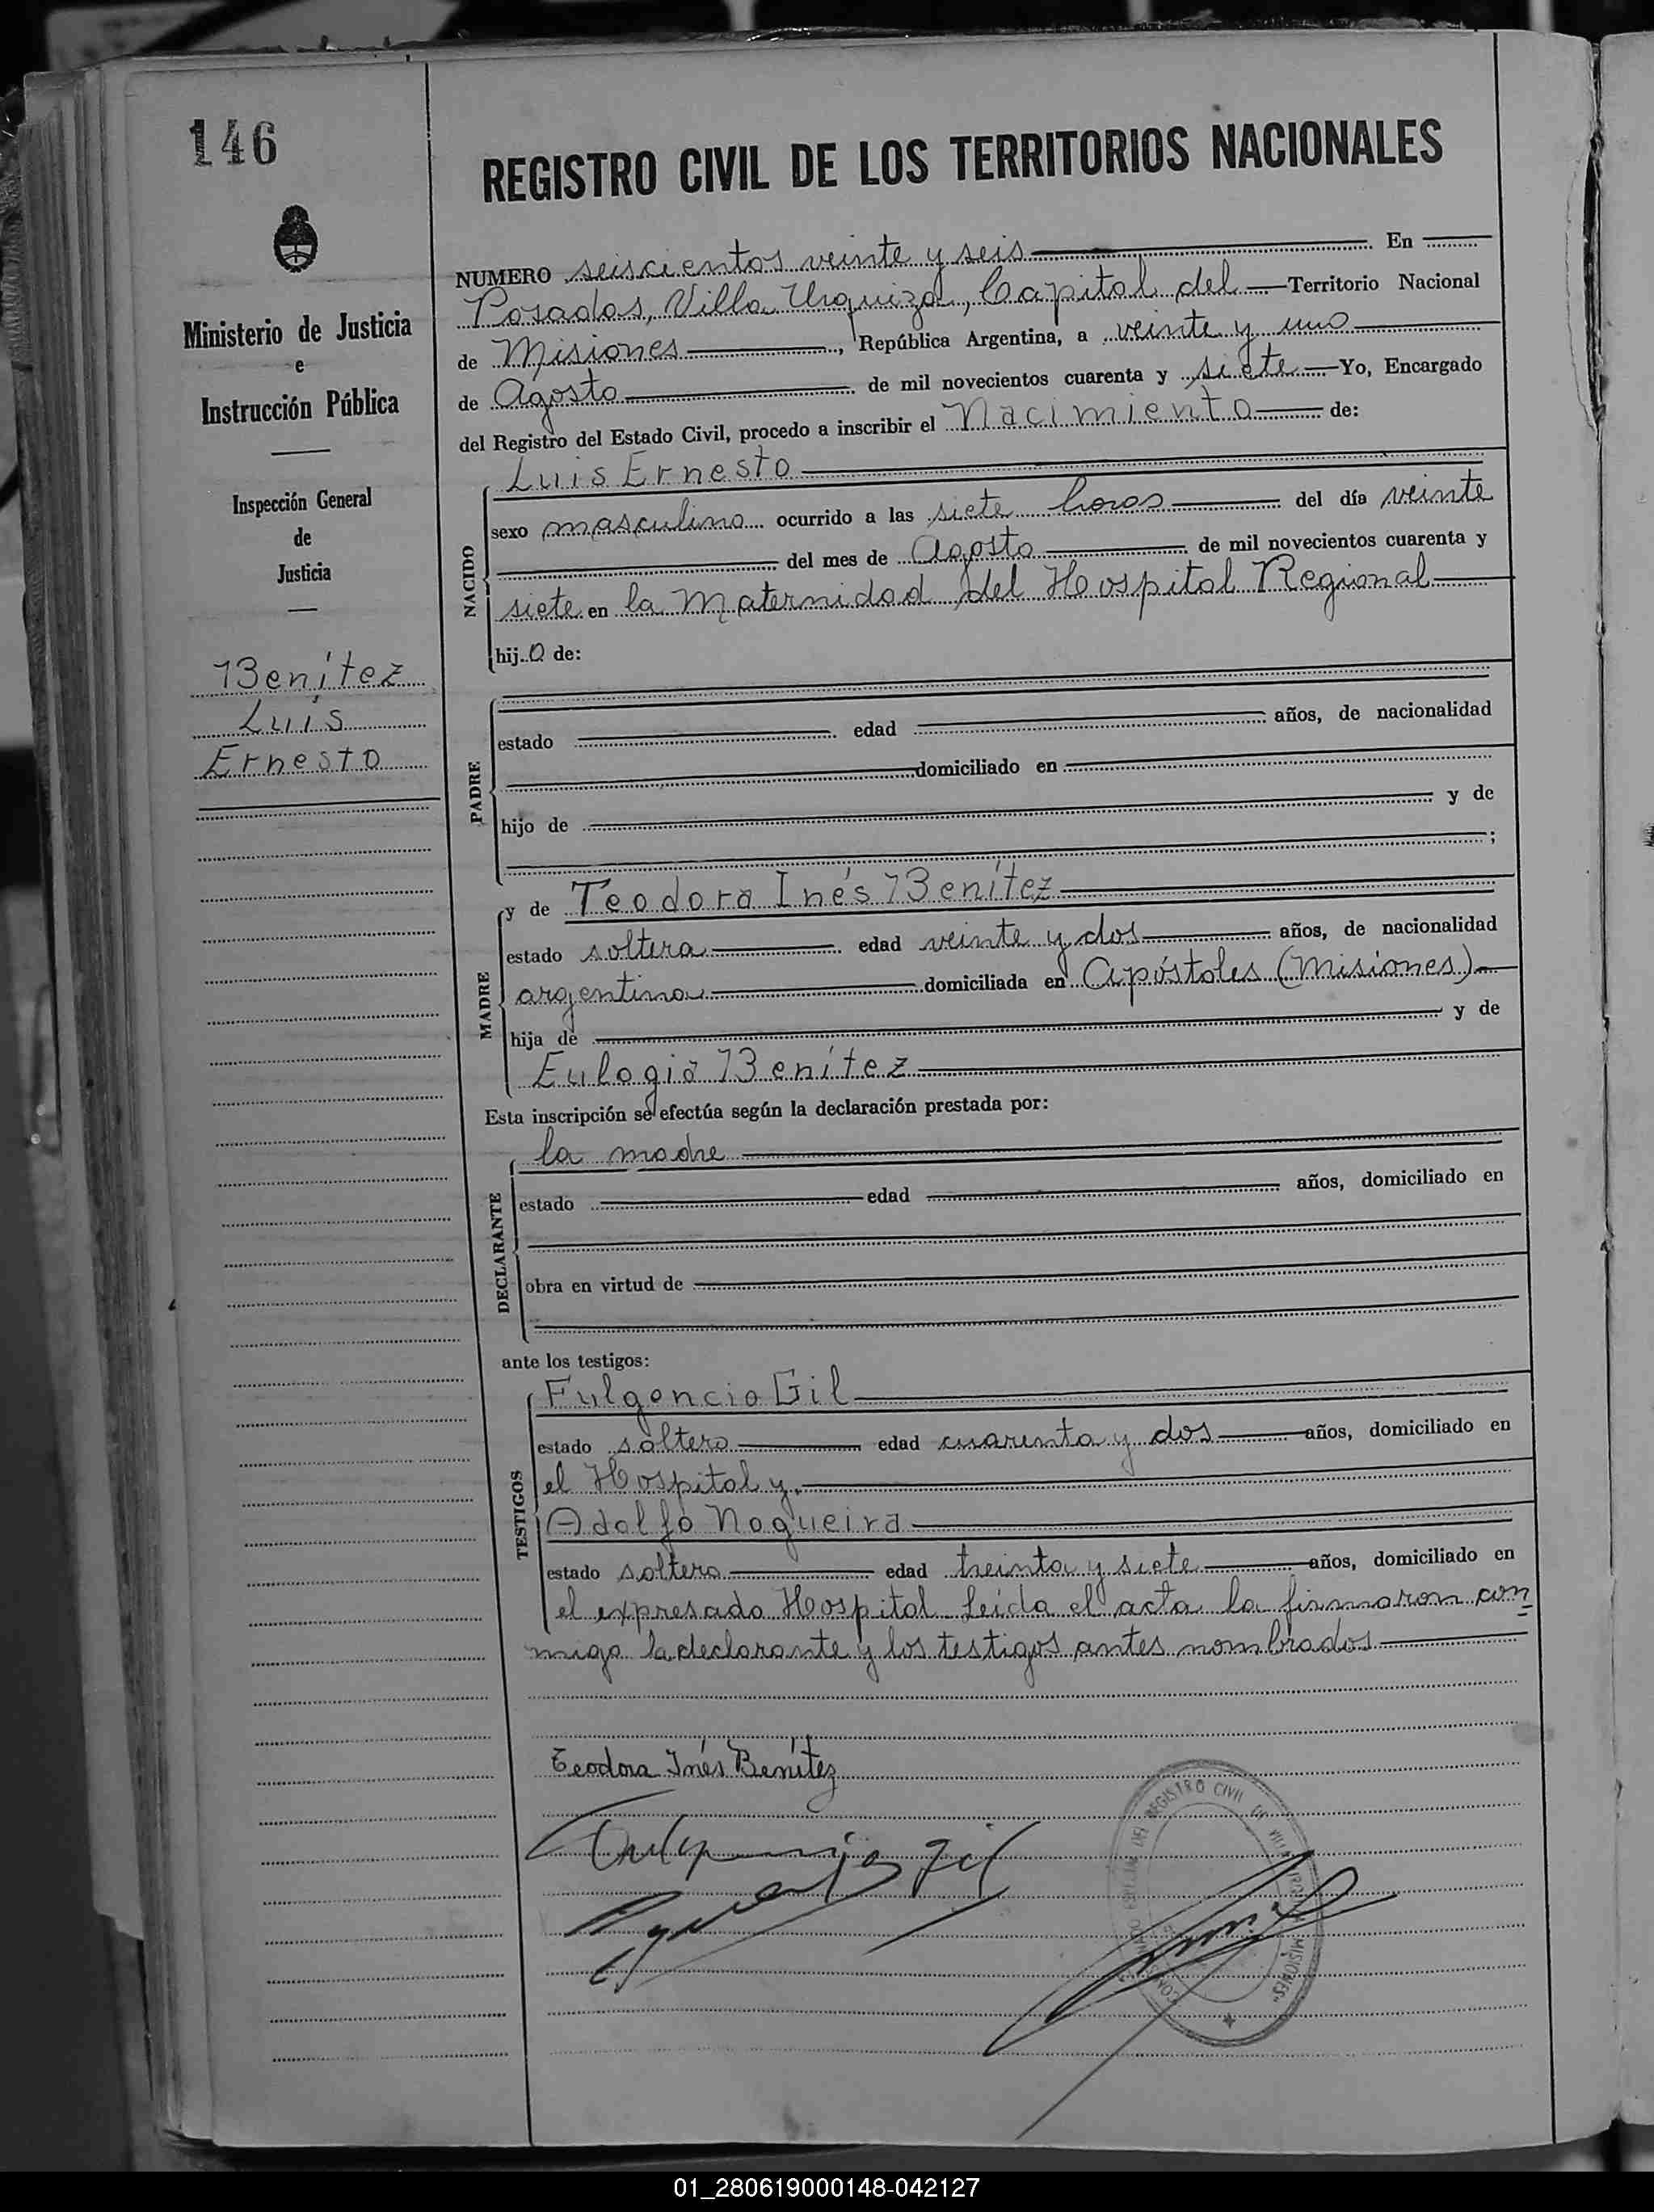 146
REGISTRO CIVIL DE LOS TERRITORIOS NACIONALES
Ministerio de Justicia
e
Instrucción Pública
Inspección General
de
Justicia
Benítez
Luis
Ernesto
NUMERO seiscientos veinte y seis En
Posadas, Villa Urquiza, Capital del Territorio Nacional
de Misiones, República Argentina, a veinte y uno
de Agosto de mil novecientos cuarenta y siete Yo, Encargado
del Registro del Estado Civil, procedo a inscribir el Nacimiento de:
Luis Ernesto
NACIDO
sexo masculino ocurrido a las siete horas del día veinte
del mes de Agosto de mil novecientos cuarenta y
siete en la Maternidad del Hospital Regional
hijo de:
PADRE
estado edad años, de nacionalidad
domiciliado en
hijo de y de
;
MADRE
y de Teodora Inés Benítez
estado soltera edad veinte y dos años, de nacionalidad
argentina domiciliada en Apóstoles (Misiones)
hija de y de
Eulogia Benítez
Esta inscripción se efectúa según la declaración prestada por:
la madre
DECLARANTE
estado edad años, domiciliado en
obra en virtud de
ante los testigos:
TESTIGOS
Fulgencio Gil
estado soltero edad cuarenta y dos años, domiciliado en
el Hospital y
Adolfo Nogueira
estado soltero edad treinta y siete años, domiciliado en
el expresado Hospital Leída el acta la firmaron con=
migo la declarante y los testigos antes nombrados
Teodora Inés Benítez
Gil
REGISTRO CIVIL DE VILLA URQUIZA MISIONES
01_280619000148-042127